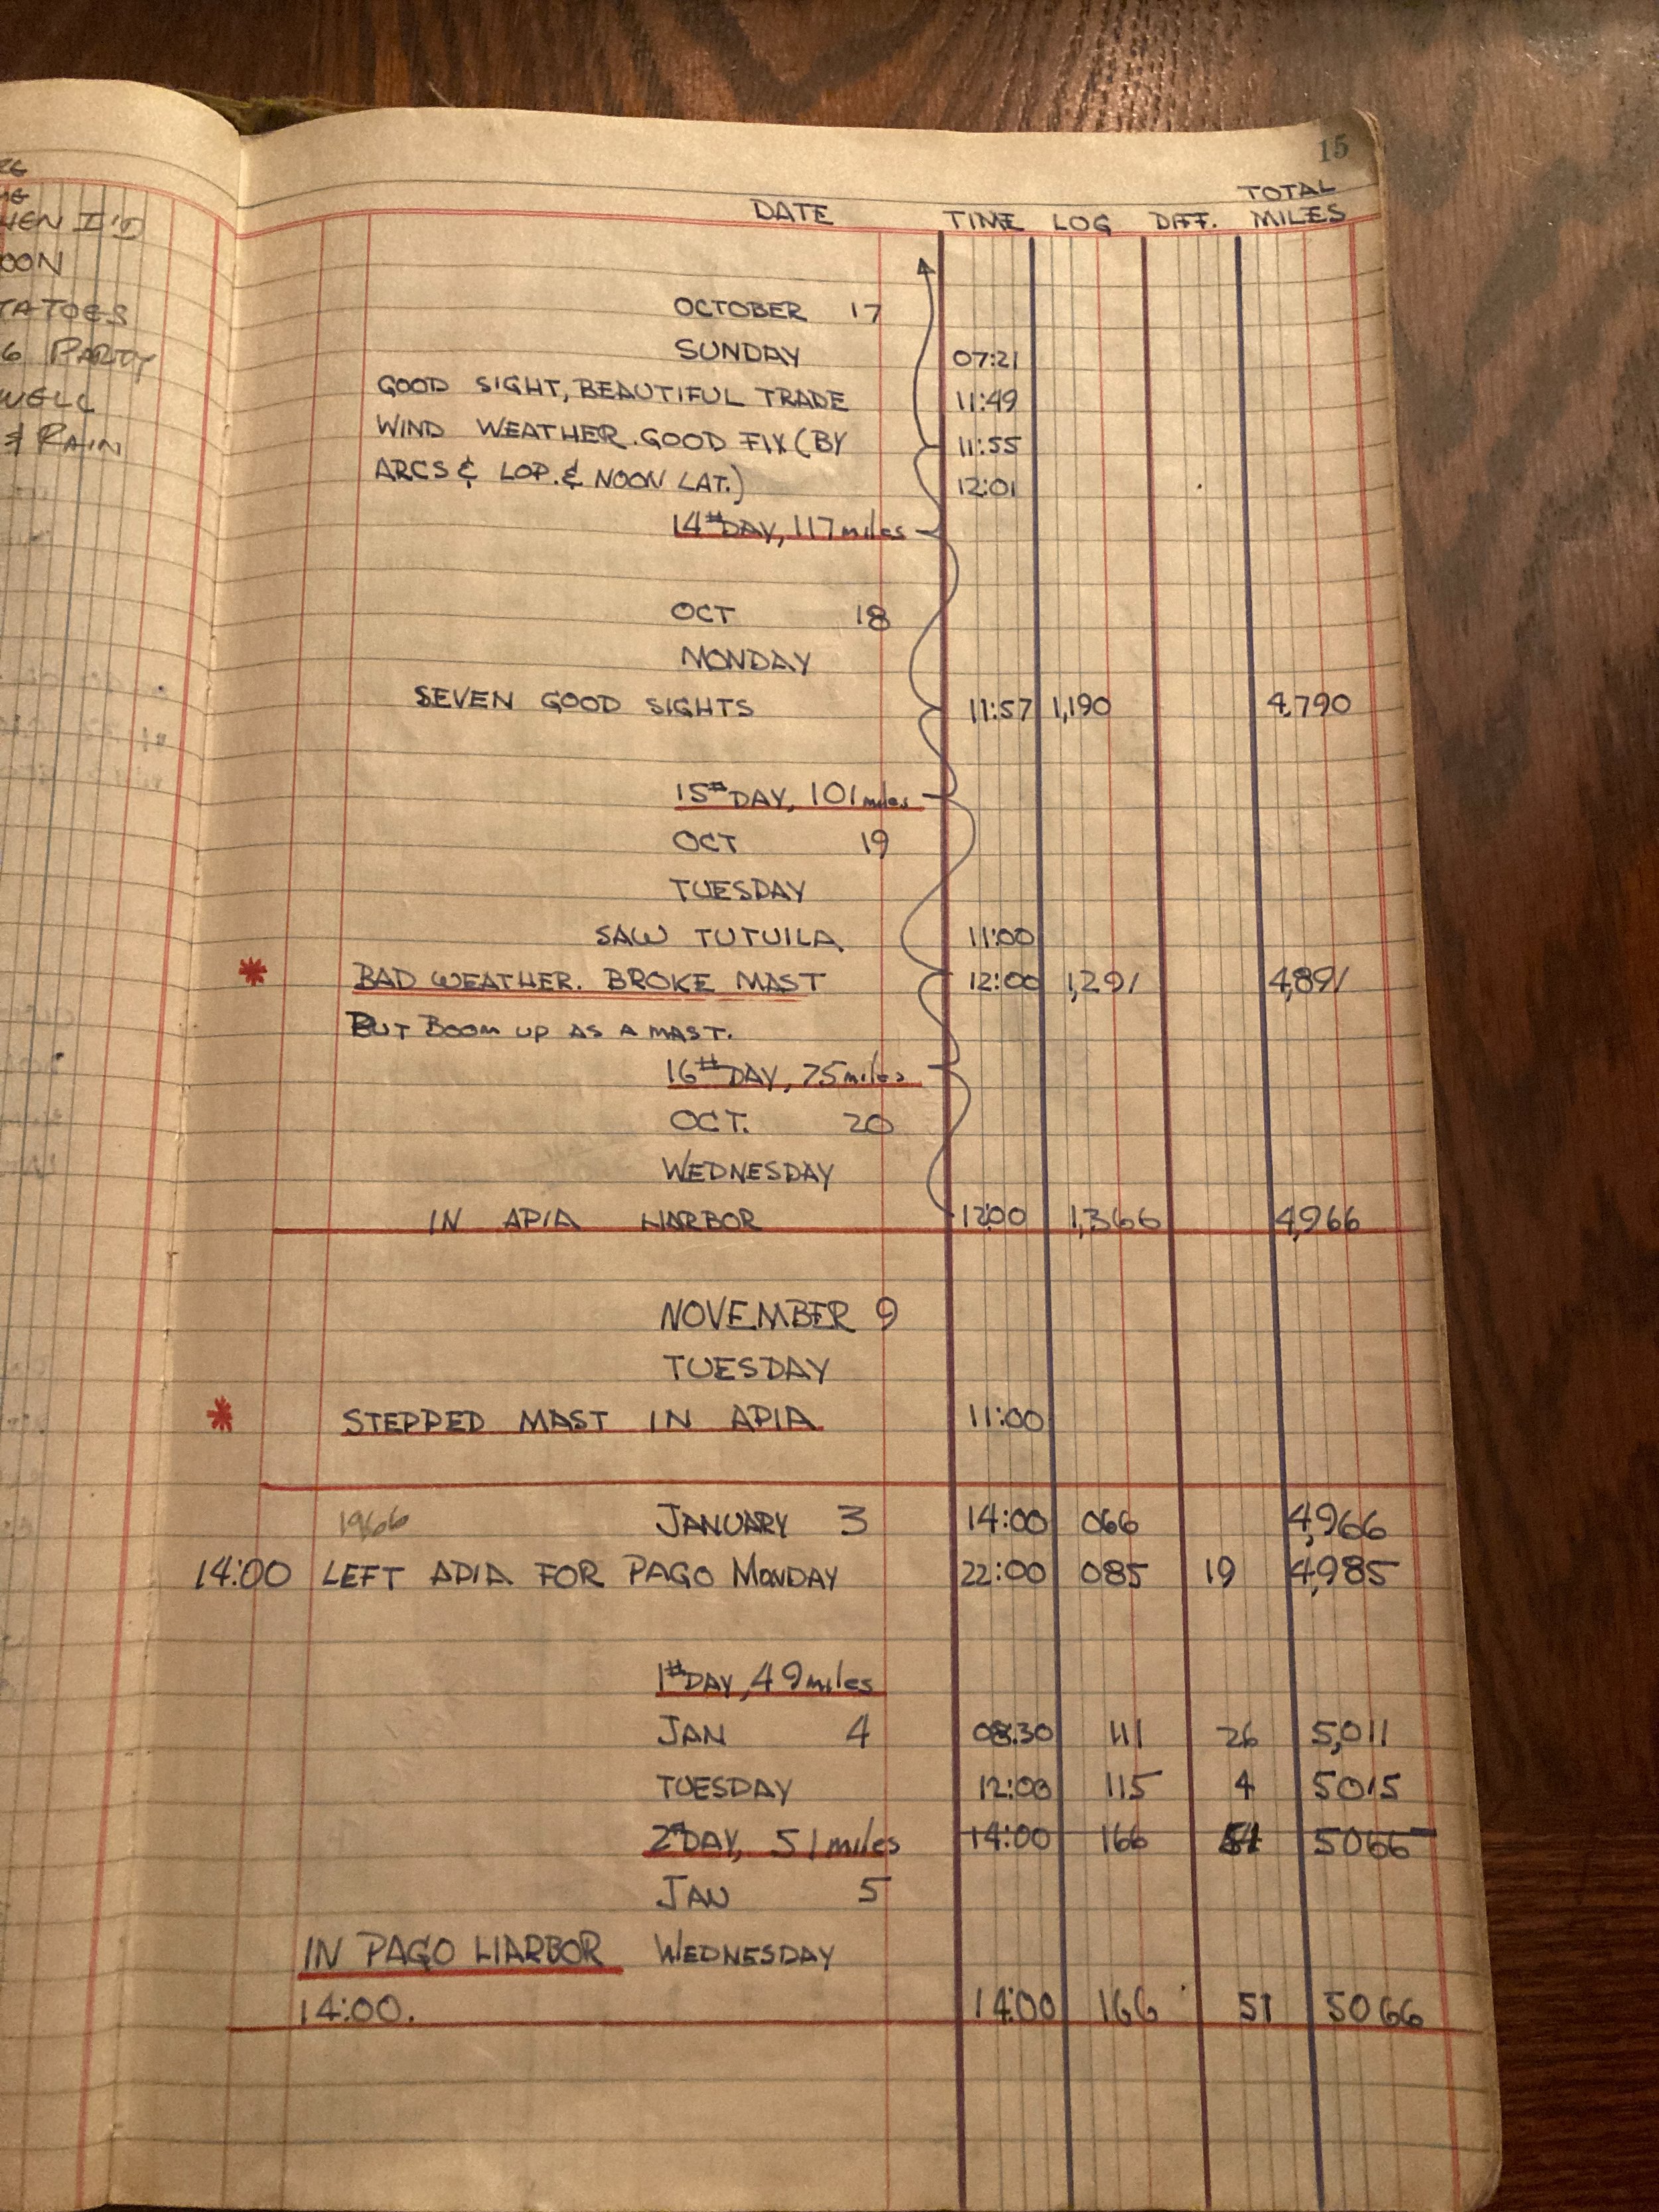 HEN I'D
OON
TATOES
PARTY
WELL
& RAIN
15
TOTAL
DATE TIME LOG DIFF. MILES
OCTOBER 17
SUNDAY 07:21
GOOD SIGHT, BEAUTIFUL TRADE 11:49
WIND WEATHER. GOOD FIX (BY 11:55
ARCS & LOP. & NOON LAT.) 12:01
14th DAY, 117 miles
OCT 18
MONDAY
SEVEN GOOD SIGHTS 11:57 1,190 4,790
15th DAY, 101 miles
OCT 19
TUESDAY
SAW TUTUILA 11:00
* BAD WEATHER. BROKE MAST 12:00 1,291 4,891
BUT BOOM UP AS A MAST.
16th DAY, 75 miles
OCT. 20
WEDNESDAY
IN APIA HARBOR 12:00 1,366 4,966
NOVEMBER 9
TUESDAY
* STEPPED MAST IN APIA 11:00
1966 JANUARY 3 14:00 066 4,966
14:00 LEFT APIA FOR PAGO MONDAY 22:00 085 19 4,985
1st DAY, 49 miles
JAN 4 08:30 111 26 5,011
TUESDAY 12:00 115 4 5015
2nd DAY, 51 miles 14:00 166 51 5066
JAN 5
IN PAGO HARBOR WEDNESDAY
14:00. 14:00 166 51 5066